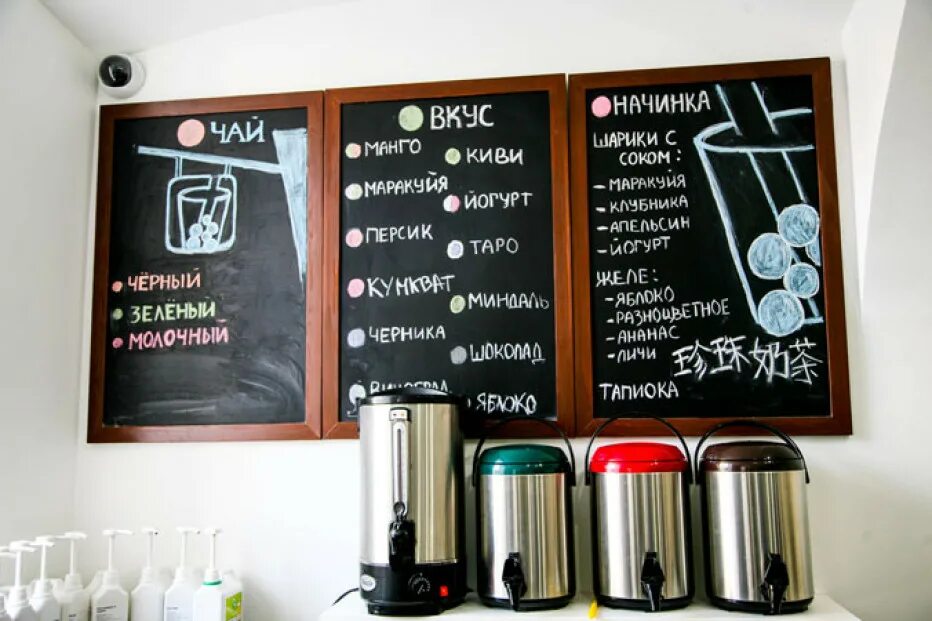 ЧАЙ
ЧЁРНЫЙ
ЗЕЛЁНЫЙ
МОЛОЧНЫЙ
ВКУС
МАНГО
МАРАКУЙЯ
ПЕРСИК
КУМКВАТ
ЧЕРНИКА
ВИНОГРАД
КИВИ
ЙОГУРТ
ТАРО
МИНДАЛЬ
ШОКОЛАД
ЯБЛОКО
НАЧИНКА
ШАРИКИ С
СОКОМ:
- МАРАКУЙЯ
- КЛУБНИКА
- АПЕЛЬСИН
- ЙОГУРТ
ЖЕЛЕ:
- ЯБЛОКО
- РАЗНОЦВЕТНОЕ
- АНАНАС
- ЛИЧИ
ТАПИОКА
珍珠奶茶